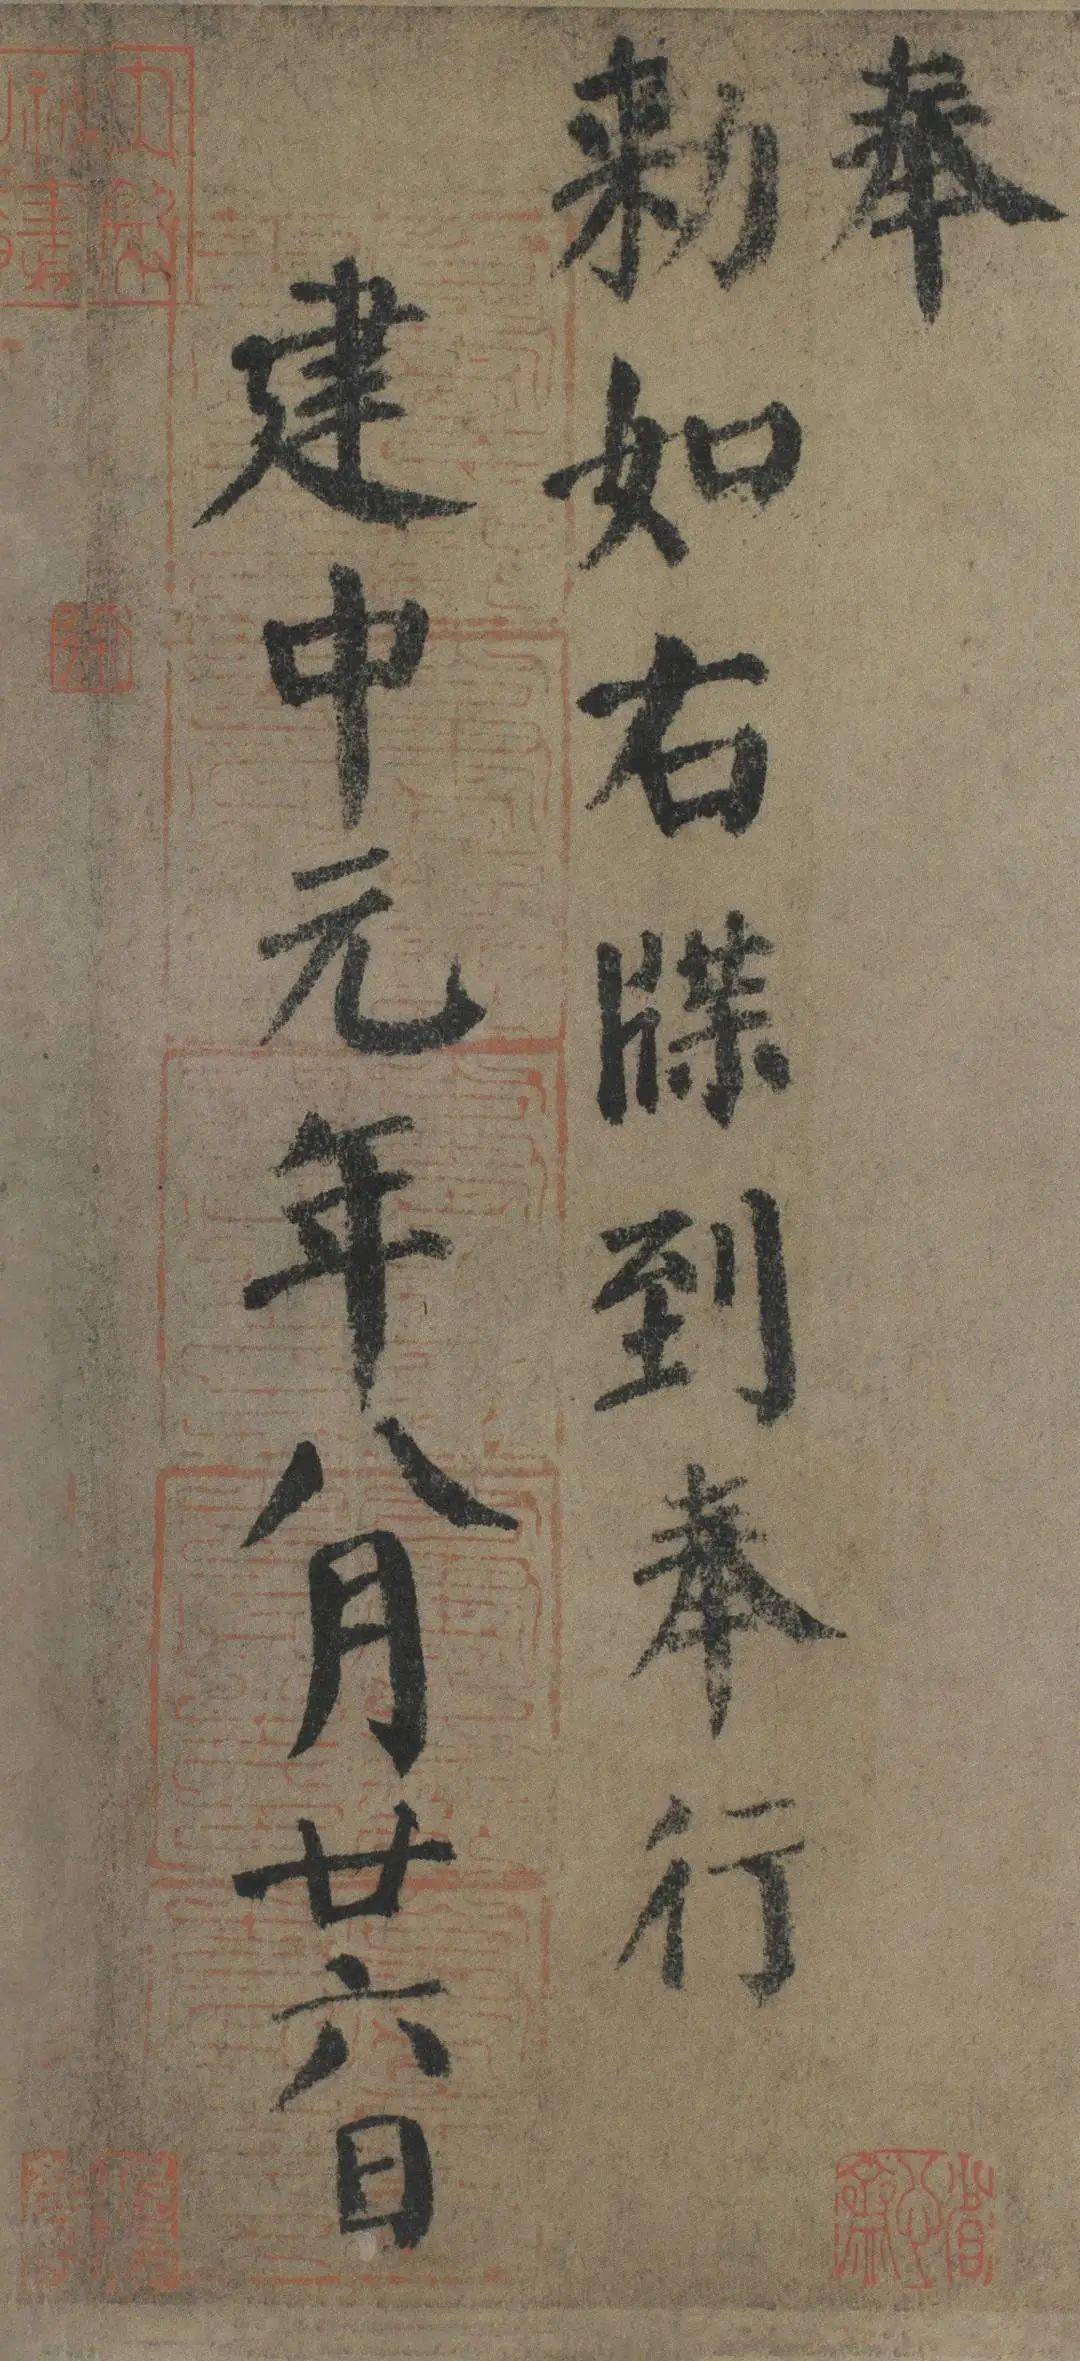 奉
勑如右牒到奉行
建中元年八月廿六日